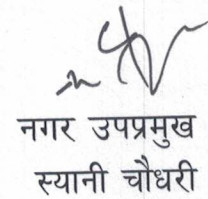 नगर उपप्रमुख
स्यानी चौधरी